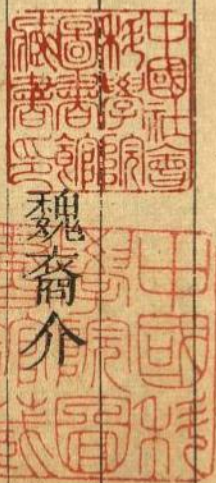 中國社會
科學院
圖書館
藏書印
魏裔介
中國科
學院圖